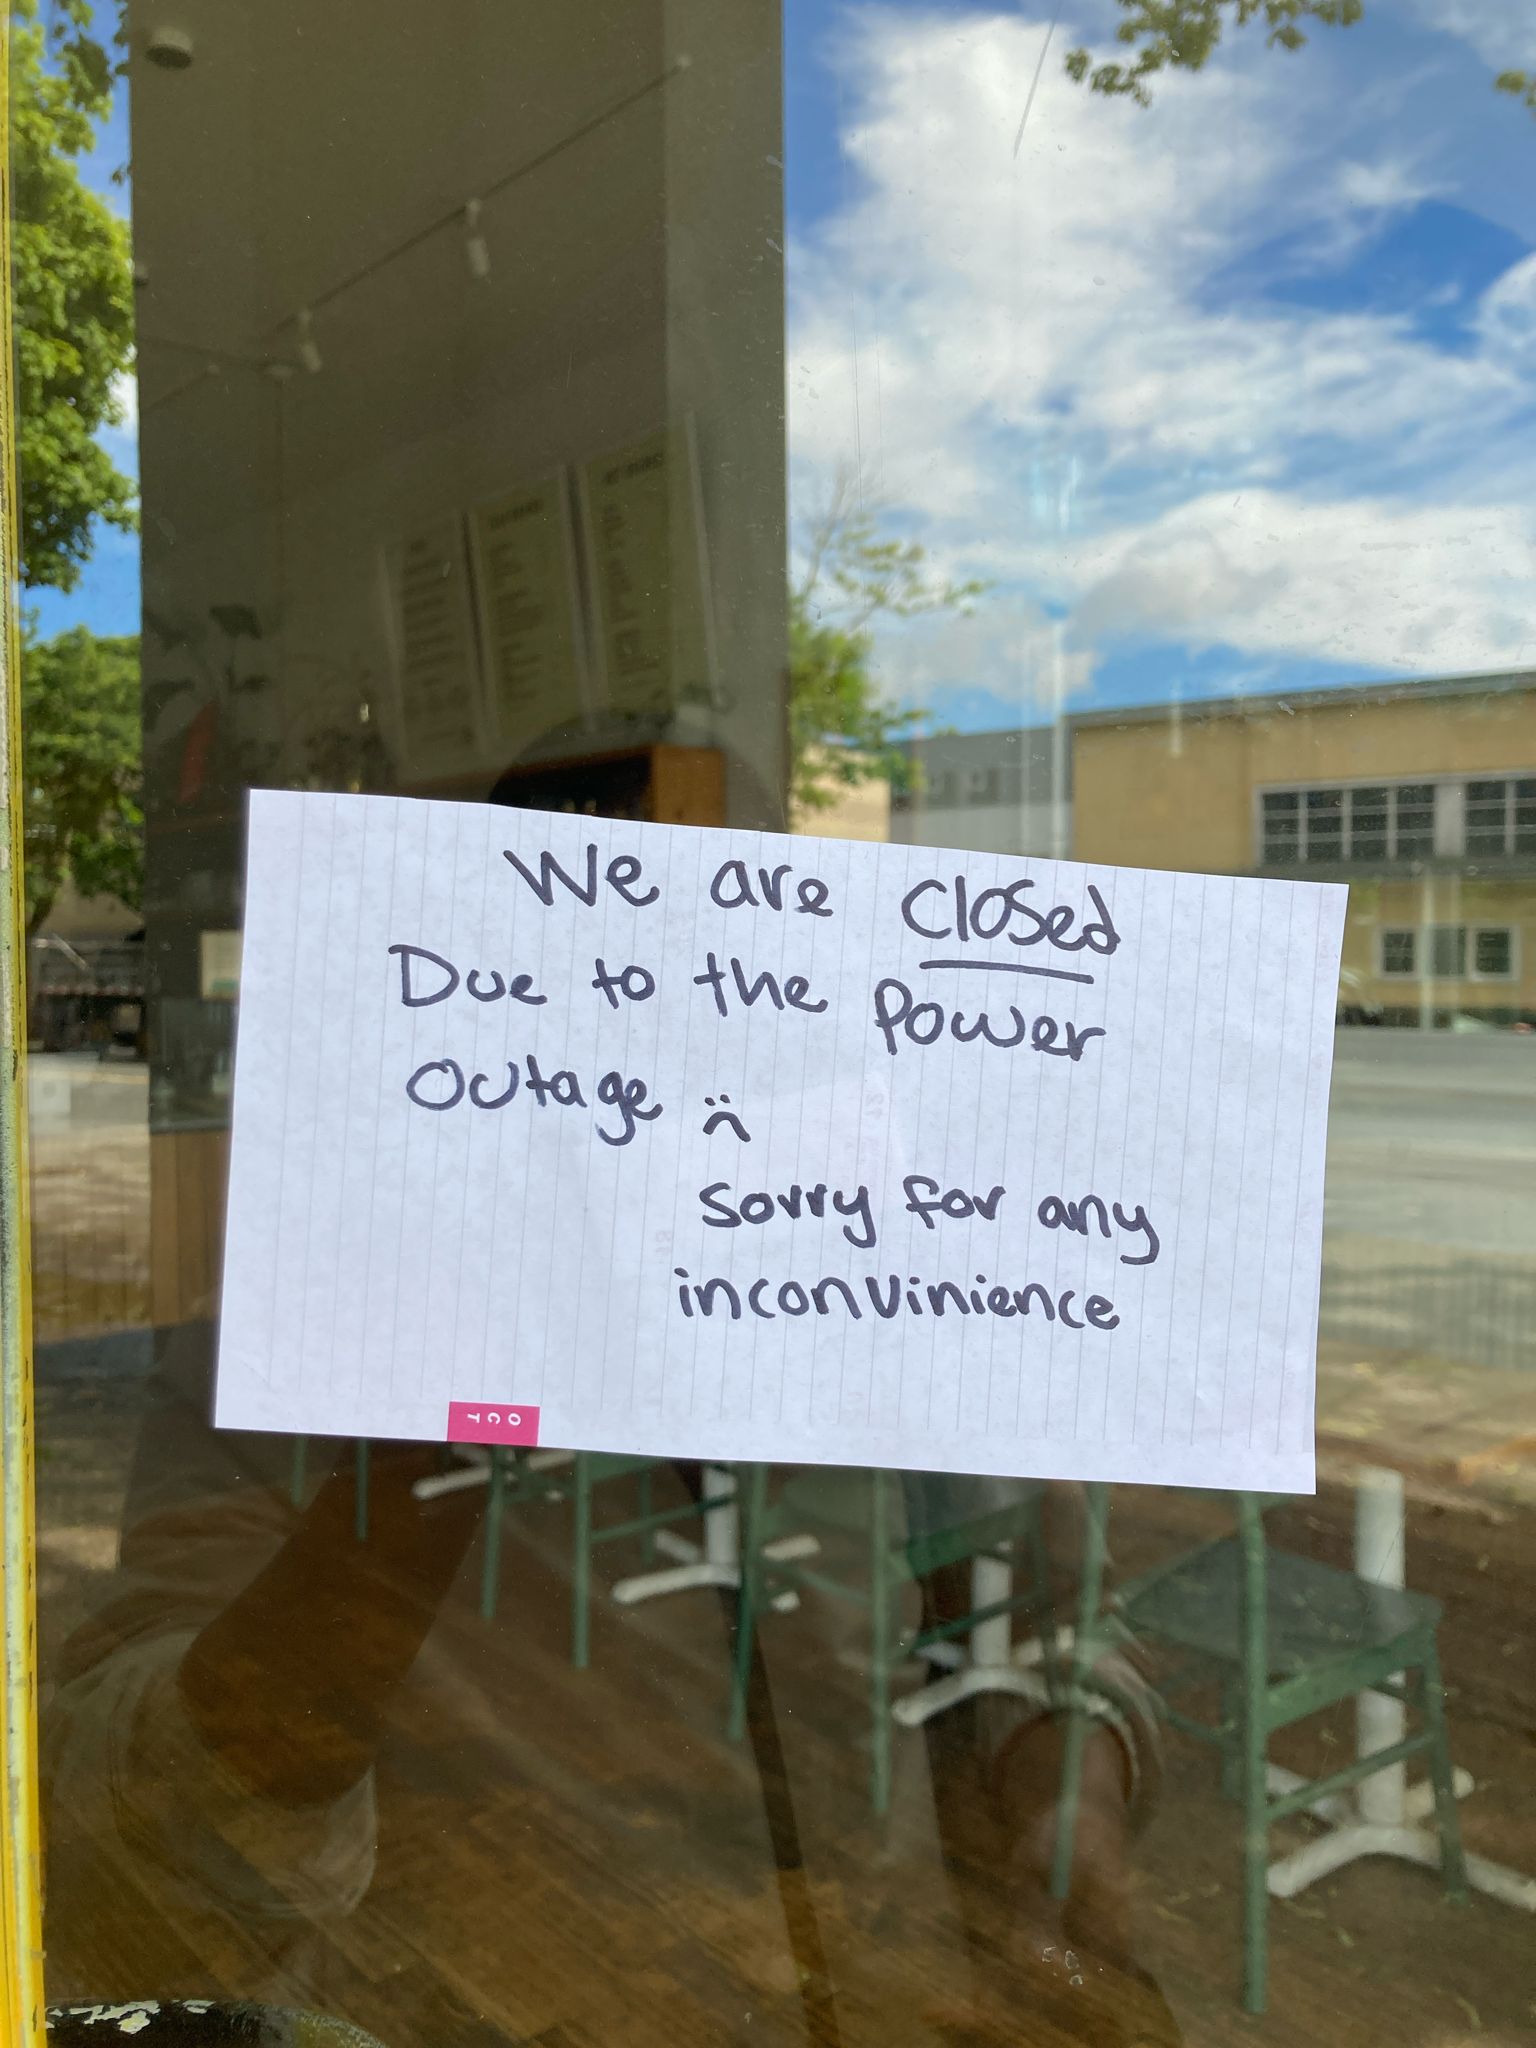 We are closed
Due to the Power
Outage :(
sorry for any
inconvinience
OCT